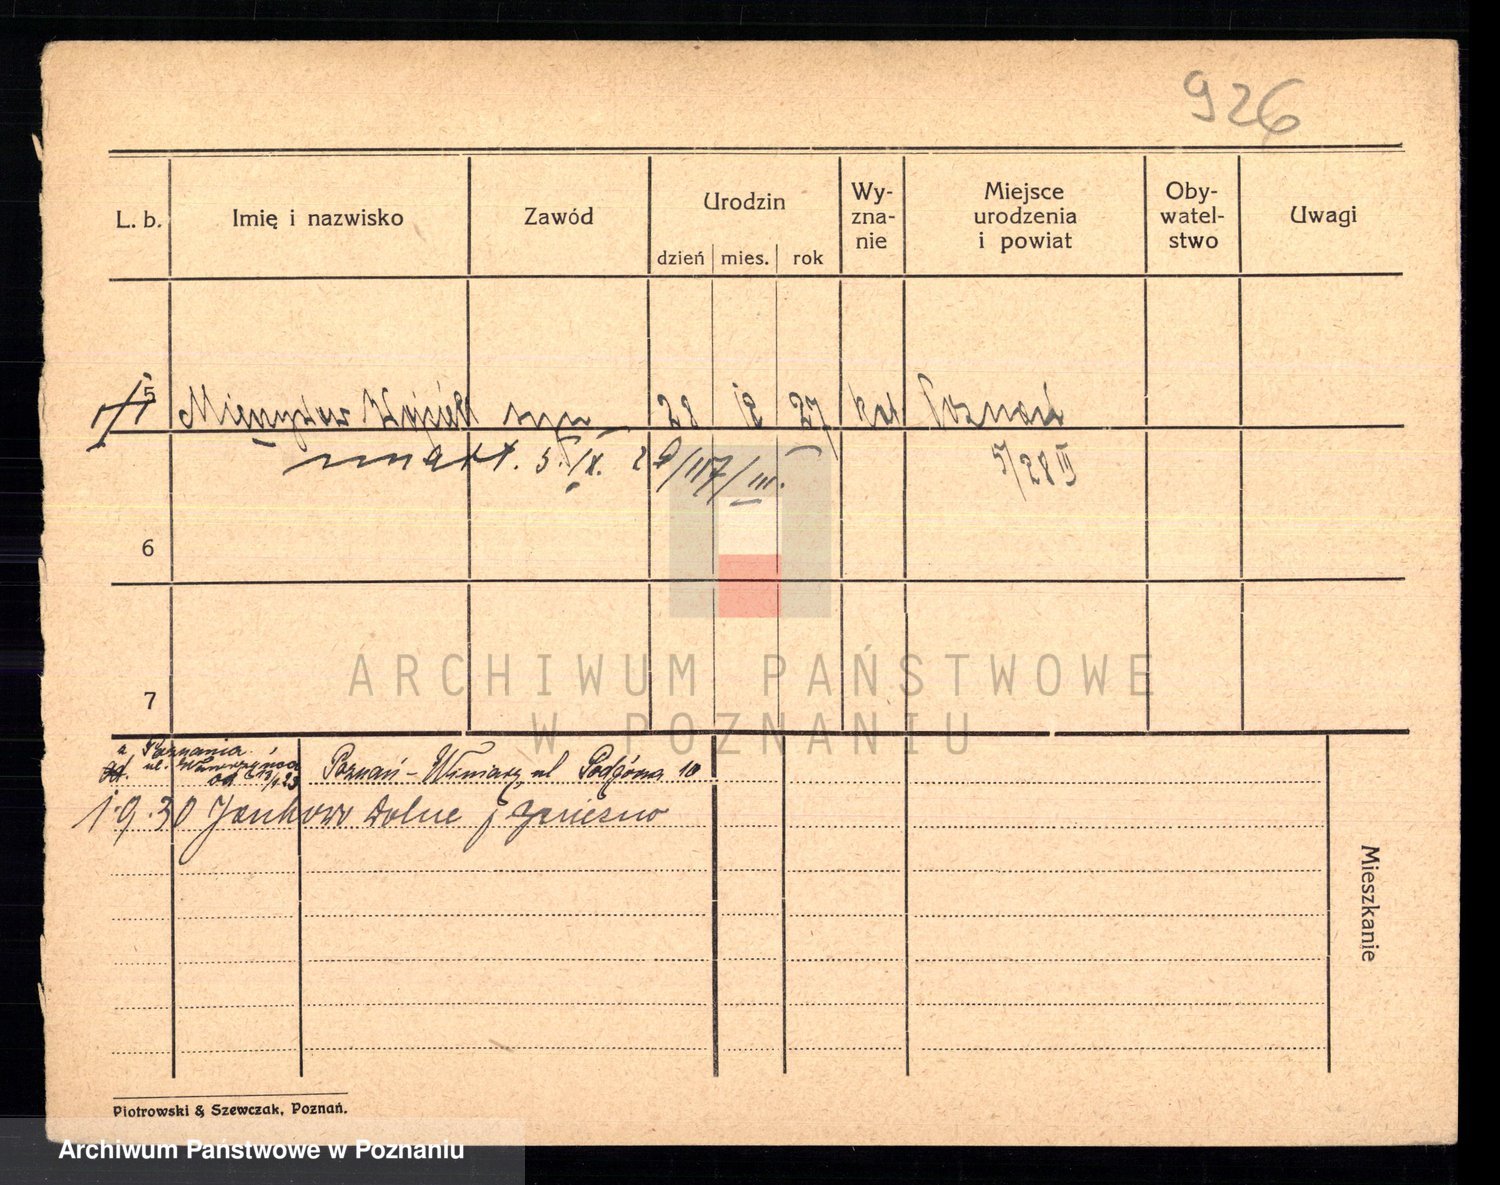 926
L. b. Imię i nazwisko Zawód Urodzin dzień mies. rok Wy-zna-nie Miejsce urodzenia i powiat Oby-watel-stwo Uwagi
5 Mieczysław syn 28 12 27 kat Poznań
umarł. 5/IX. 29/117/III. 5/28 III
6
ARCHIWUM PAŃSTWOWE
W POZNANIU
7
z Poznania
ul.
od
Poznań - Winiary, ul Podgórna 10
1.9.30 Jankowo Dolne p Gniezno
Mieszkanie
Piotrowski & Szewczak, Poznań.
Archiwum Państwowe w Poznaniu